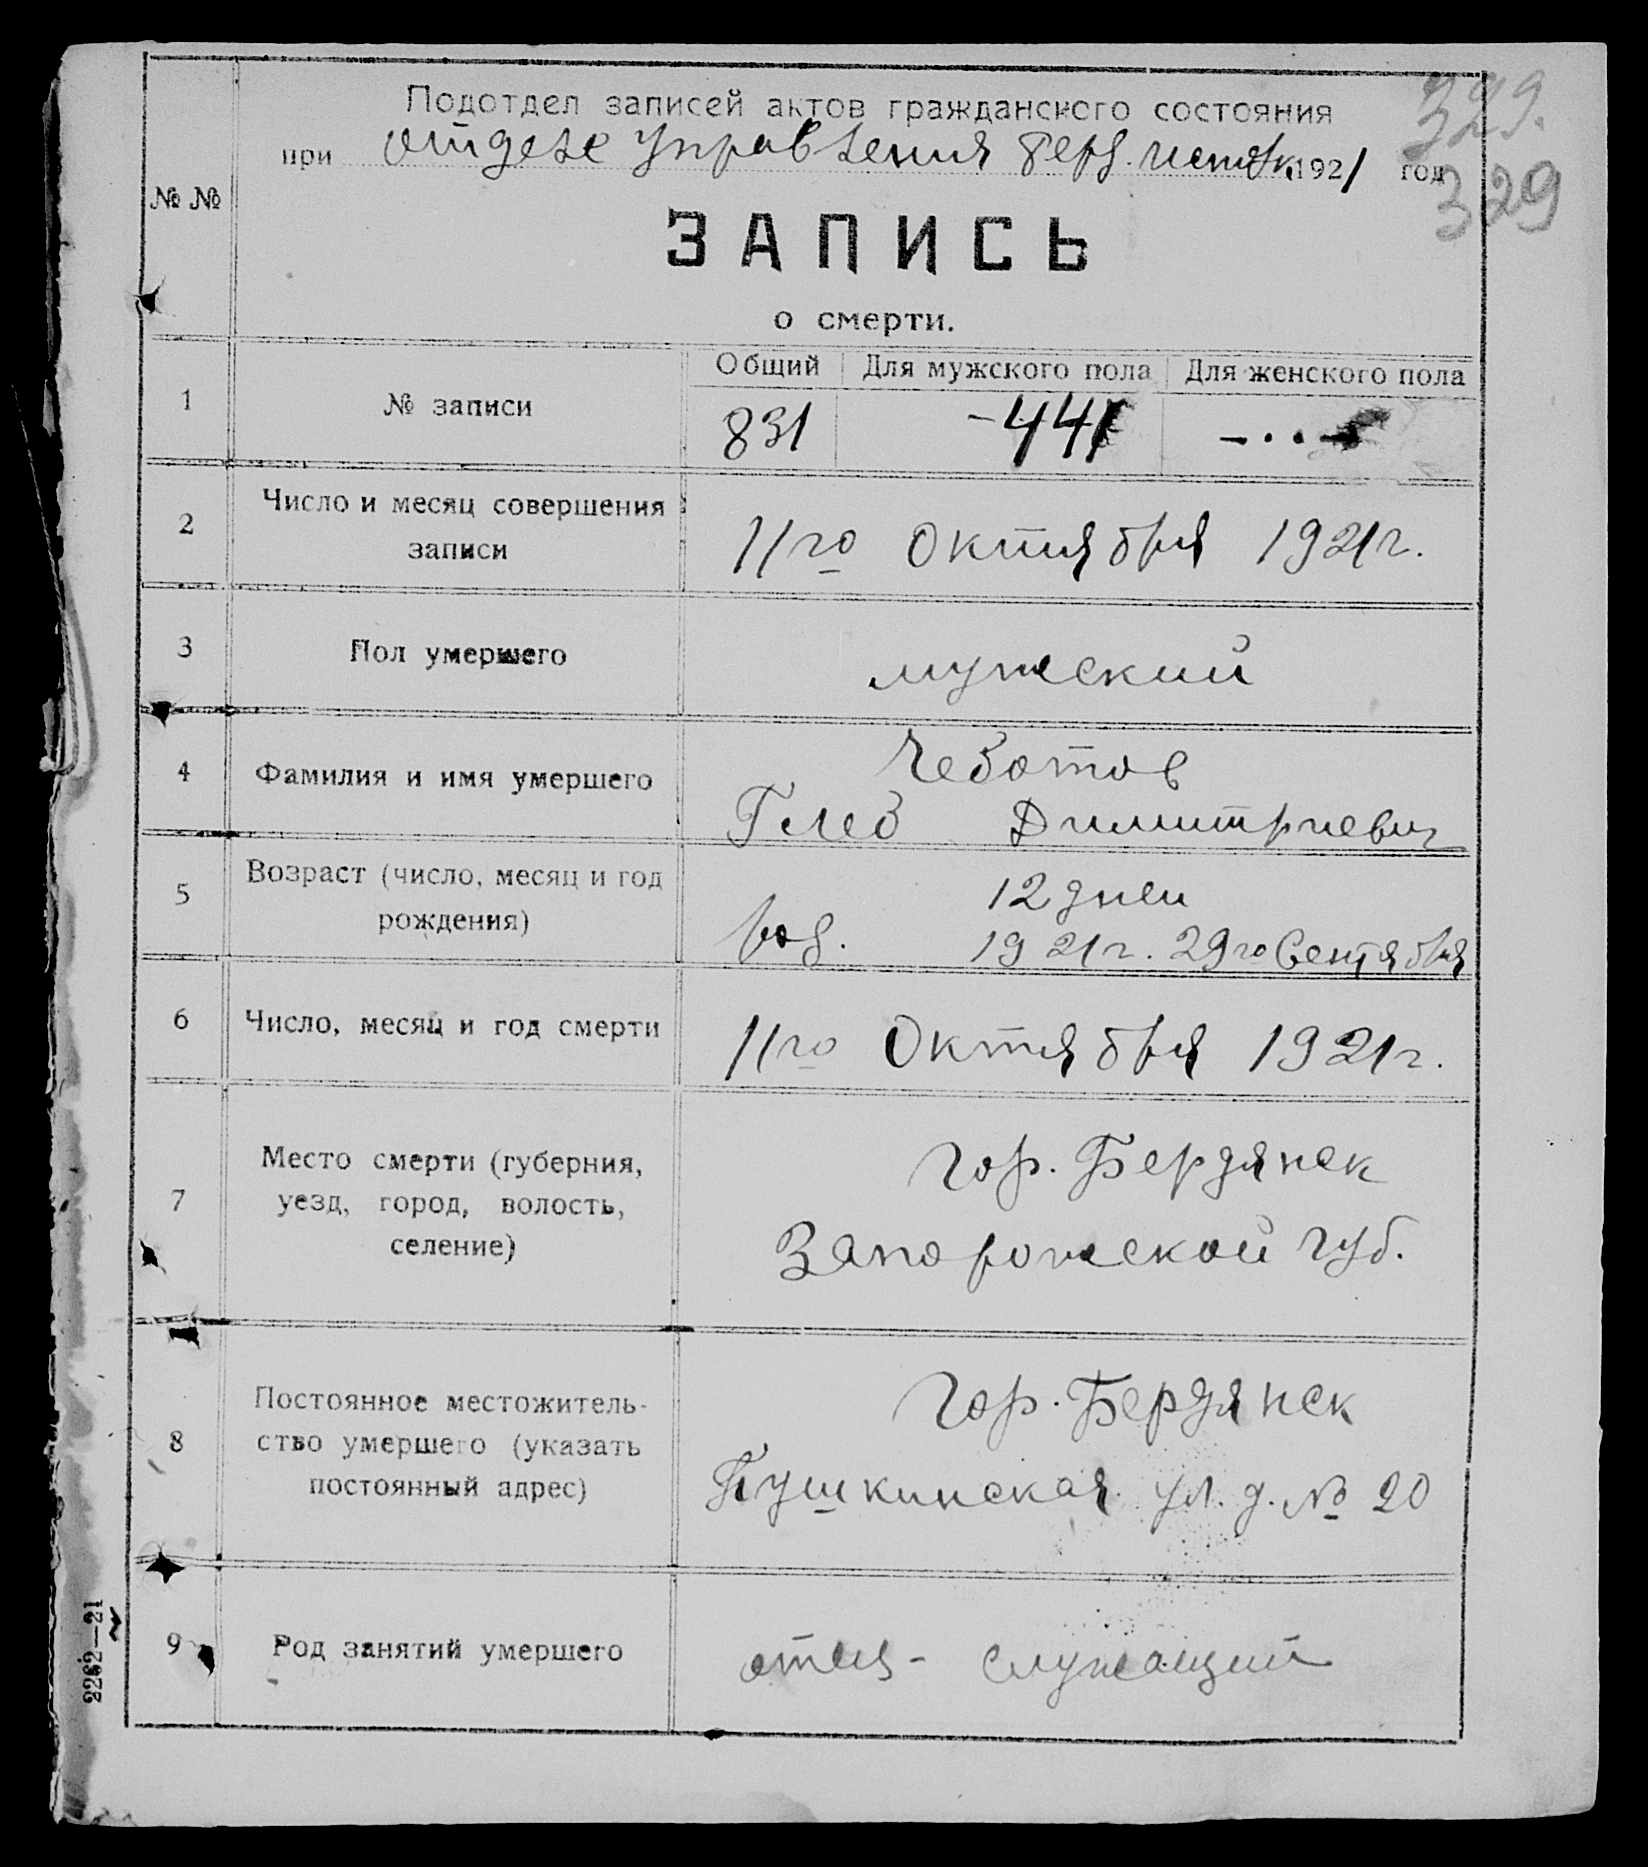 Подотдел записей актов гражданского состояния
329.
при отделе Управления Берд. 1921 год
329
№ №
ЗАПИСЬ
о смерти.
Общий Для мужского пола Для женского пола
1 № записи 831 - 441 - . . . -
2 Число и месяц совершения
записи 11го Октября 1921 г.
3 Пол умершего мужский
4 Фамилия и имя умершего Чеботов
Глеб Димитриевич
5 Возраст (число, месяц и год
рождения) 12 дней
род. 1921 г. 29го Сентября
6 Число, месяц и год смерти 11го Октября 1921 г.
7 Место смерти (губерния,
уезд, город, волость,
селение) гор. Бердянск
Запорожской губ.
8 Постоянное местожитель-
ство умершего (указать
постоянный адрес) гор. Бердянск
Пушкинская ул. д. № 20
9 Род занятий умершего отец - служащий
2262—21